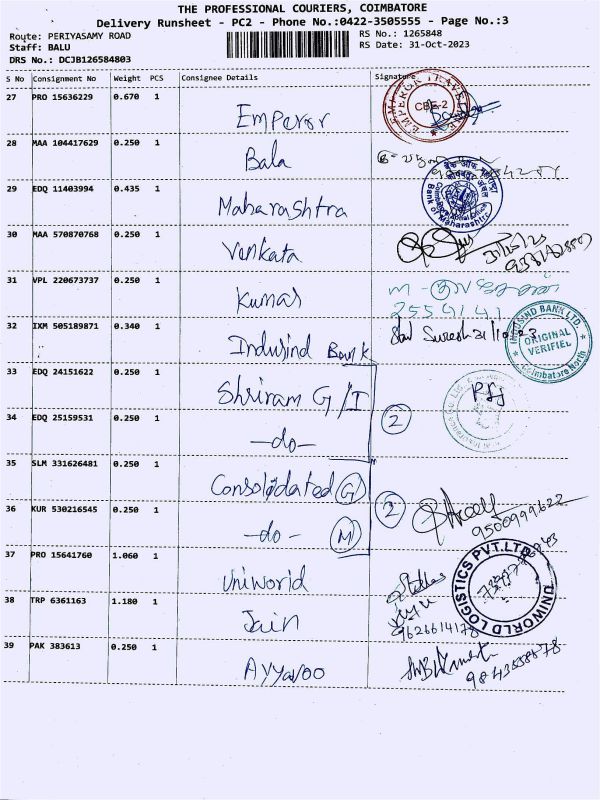 THE PROFESSIONAL COURIERS, COIMBATORE
Delivery Runsheet - PC2 - Phone No.:0422-3505555 - Page No.:3
Route: PERIYASAMY ROAD RS No.: 1265848
Staff: BALU RS Date: 31-Oct-2023
DRS No.: DCJB126584803
S No Consignment No Weight PCS Consignee Details Signature
27 PRO 15636229 0.670 1 Emperor
CBE-2
28 MAA 104417629 0.250 1 Bala
29 EDQ 11403994 0.435 1 Maharashtra
Bank of Maharashtra
30 MAA 570870768 0.250 1 Venkata
31 VPL 220673737 0.250 1 Kumar
2554141
32 IXM 505189871 0.340 1 Indusind Bank
Suresh 31/10/23
INDUSIND BANK LTD. ORIGINAL VERIFIED Coimbatore North
33 EDQ 24151622 0.250 1 Shriram G/I
34 EDQ 25159531 0.250 1 -do- 2
35 SLM 331626481 0.250 1 Consolidated G
36 KUR 530216545 0.250 1 -do- M 2
9500999622
37 PRO 15641760 1.060 1 Uniworld
UNIWORLD LOGISTICS PVT.LTD
38 TRP 6361163 1.180 1 Jain
9626614178
39 PAK 383613 0.250 1 Ayyavoo